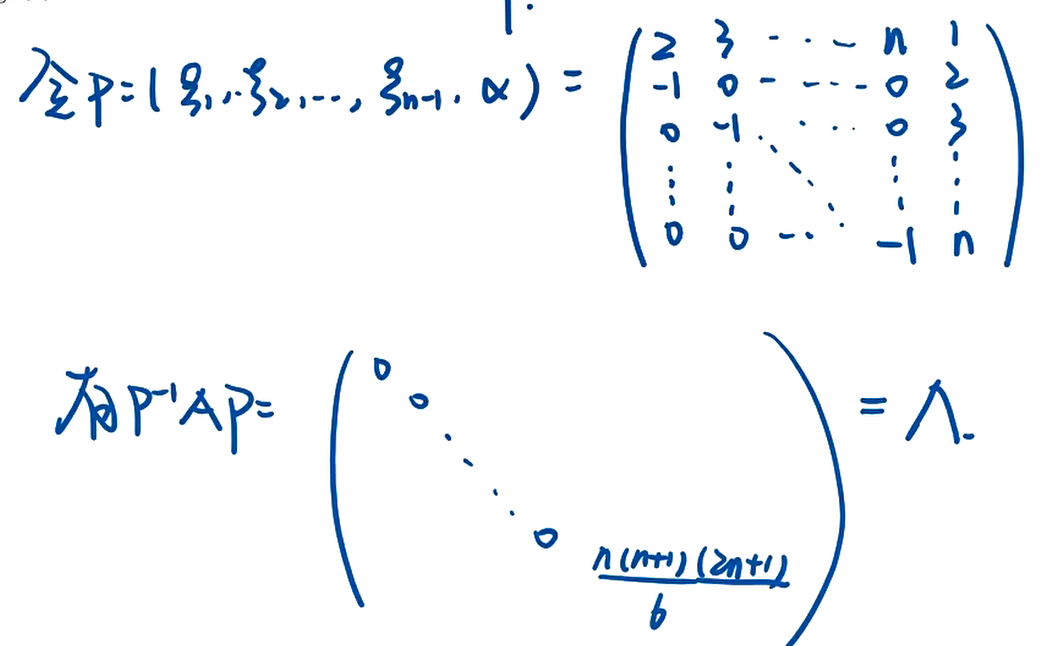 令P=(ξ₁,ξ₂,...,ξₙ₋₁,α)= ( 2 3 ... n 1
-1 0 ... 0 2
0 -1 ... 0 3
⋮ ⋮ ⋱ ⋮ ⋮
0 0 ... -1 n )
有P⁻¹AP= ( 0
0
⋱
0
n(n+1)(2n+1)/6 ) = Λ.